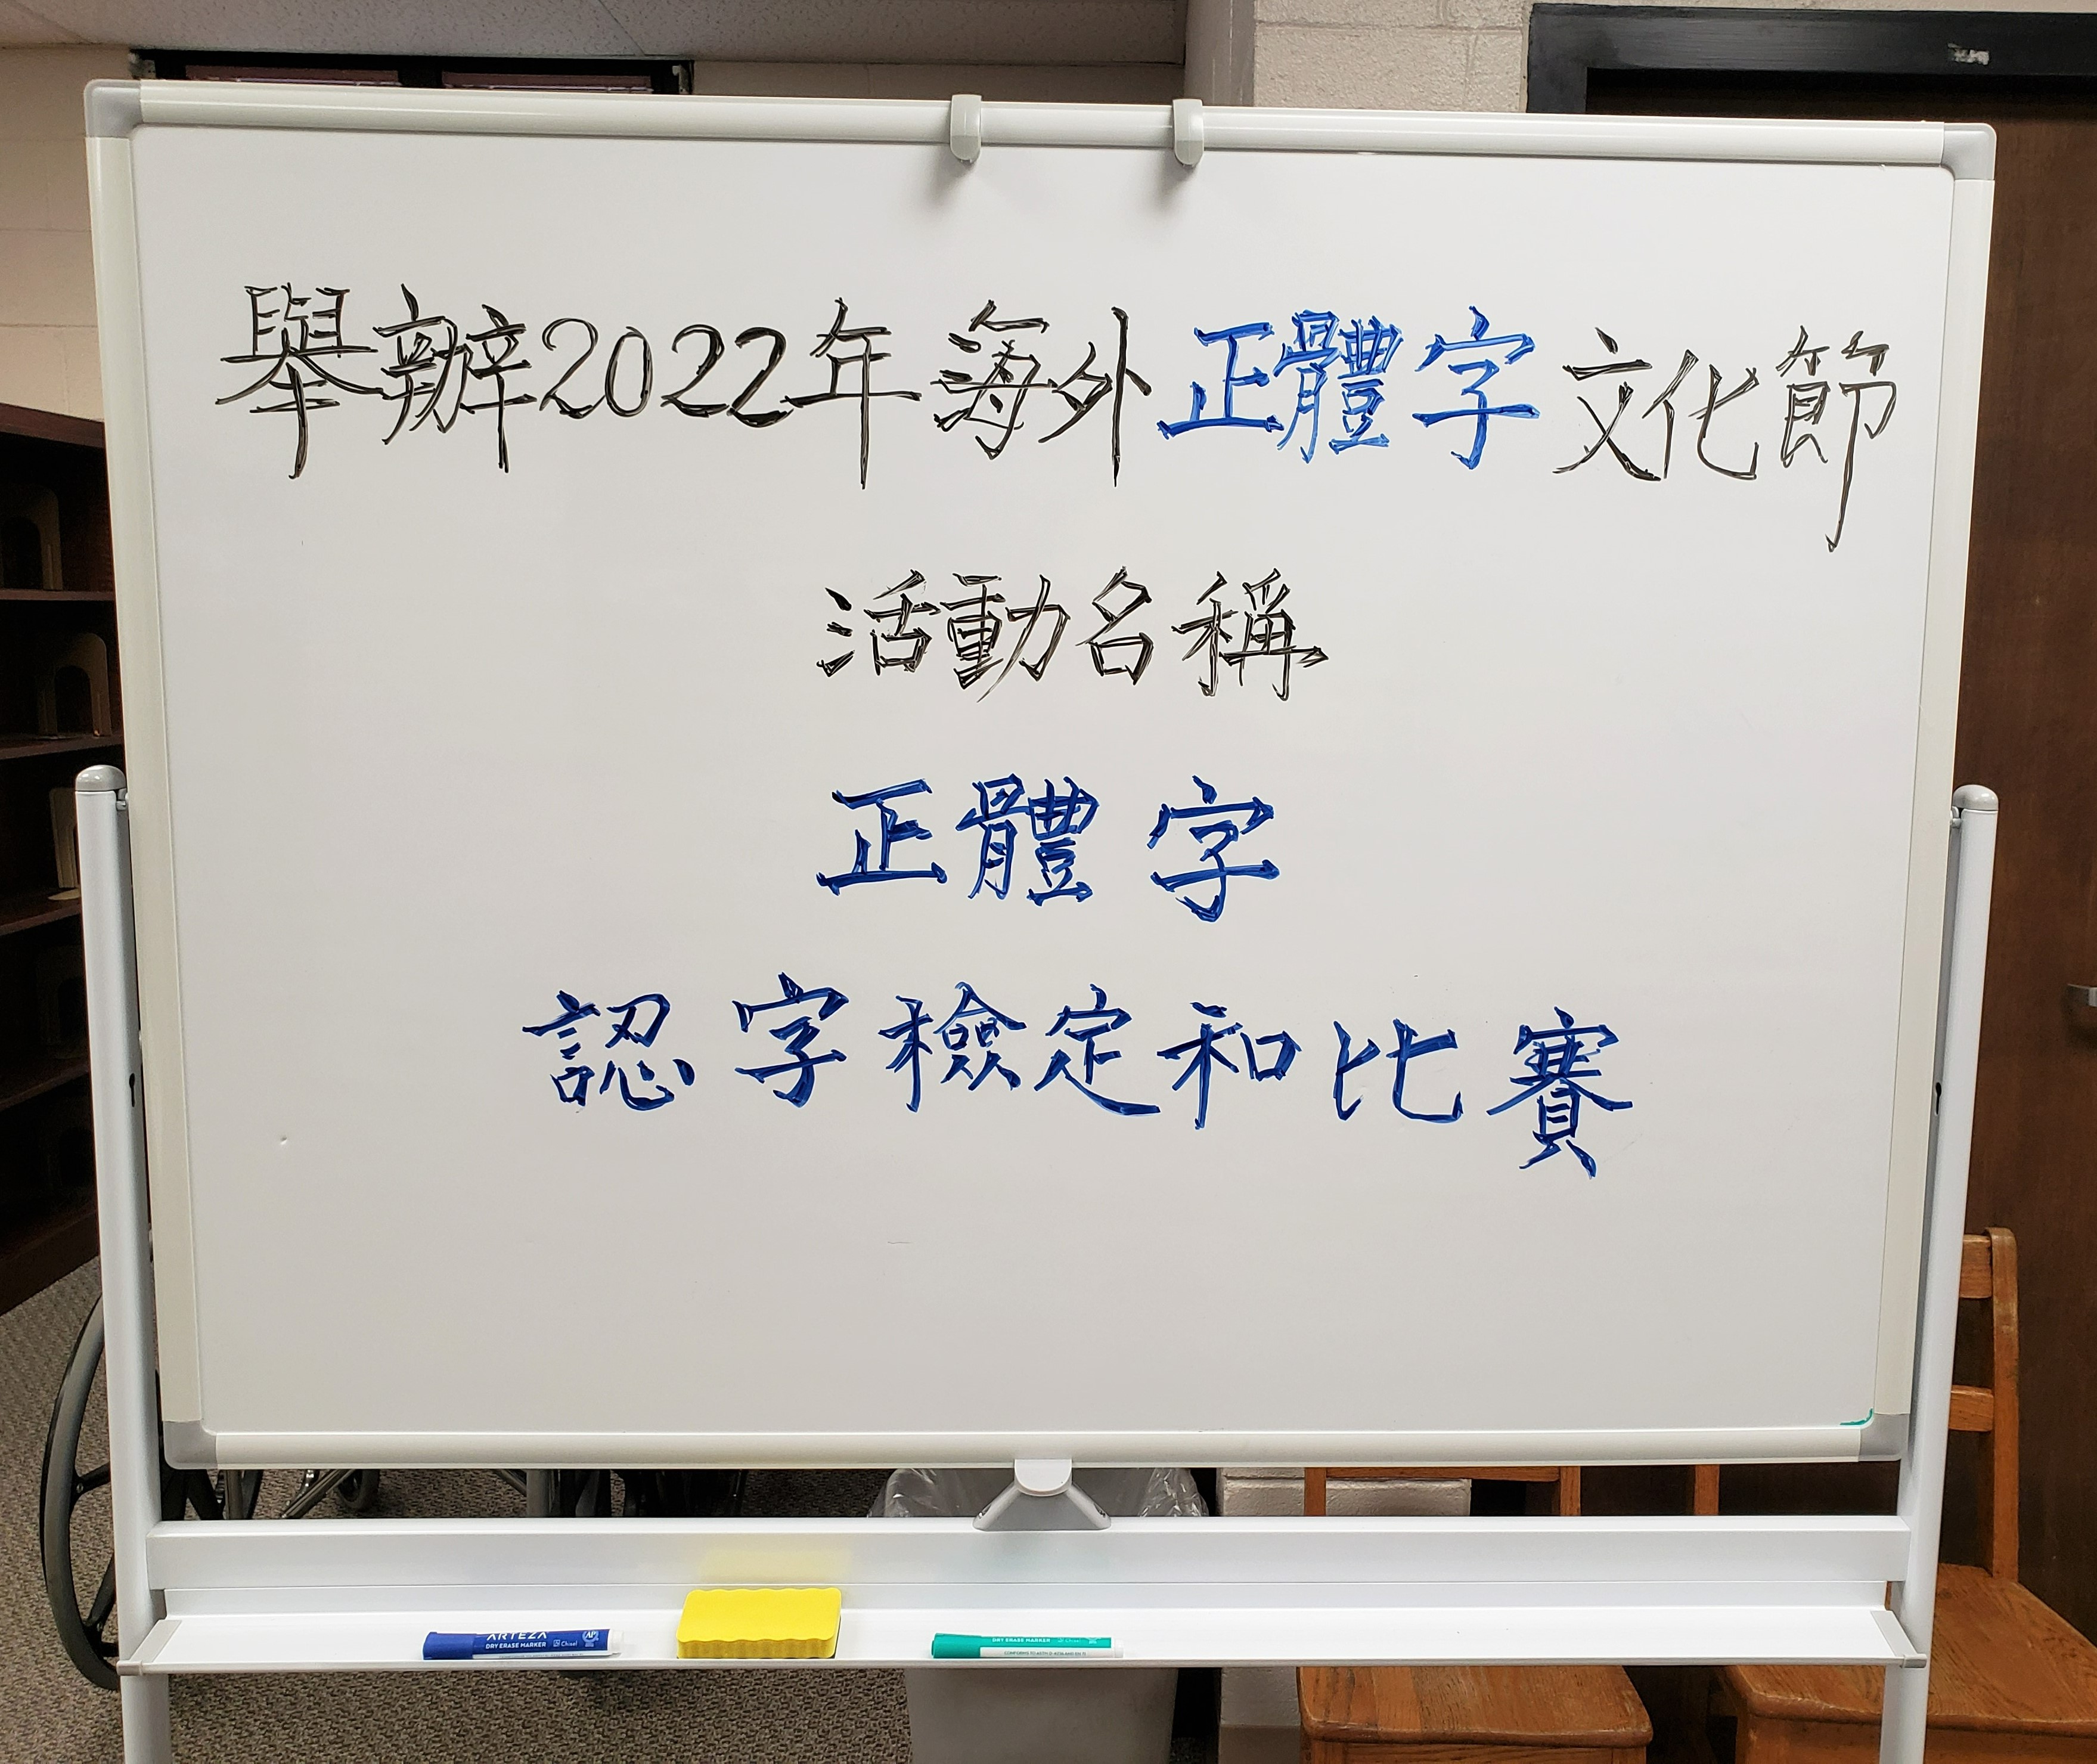 舉辦2022年海外正體字文化節
活動名稱
正體字
認字檢定和比賽
ARTEZA
DRY ERASE MARKER Chisel AP
DRY ERASE MARKER Chisel